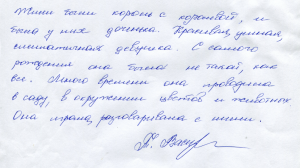 Жили были король с королевой, и
была у них доченька. Красивая, умная,
симпатичная девушка. С самого
рождения она была не такой, как
все. Много времени она проводила
в саду, в окружении цветов и животных
Она играла, разговаривала с ними.